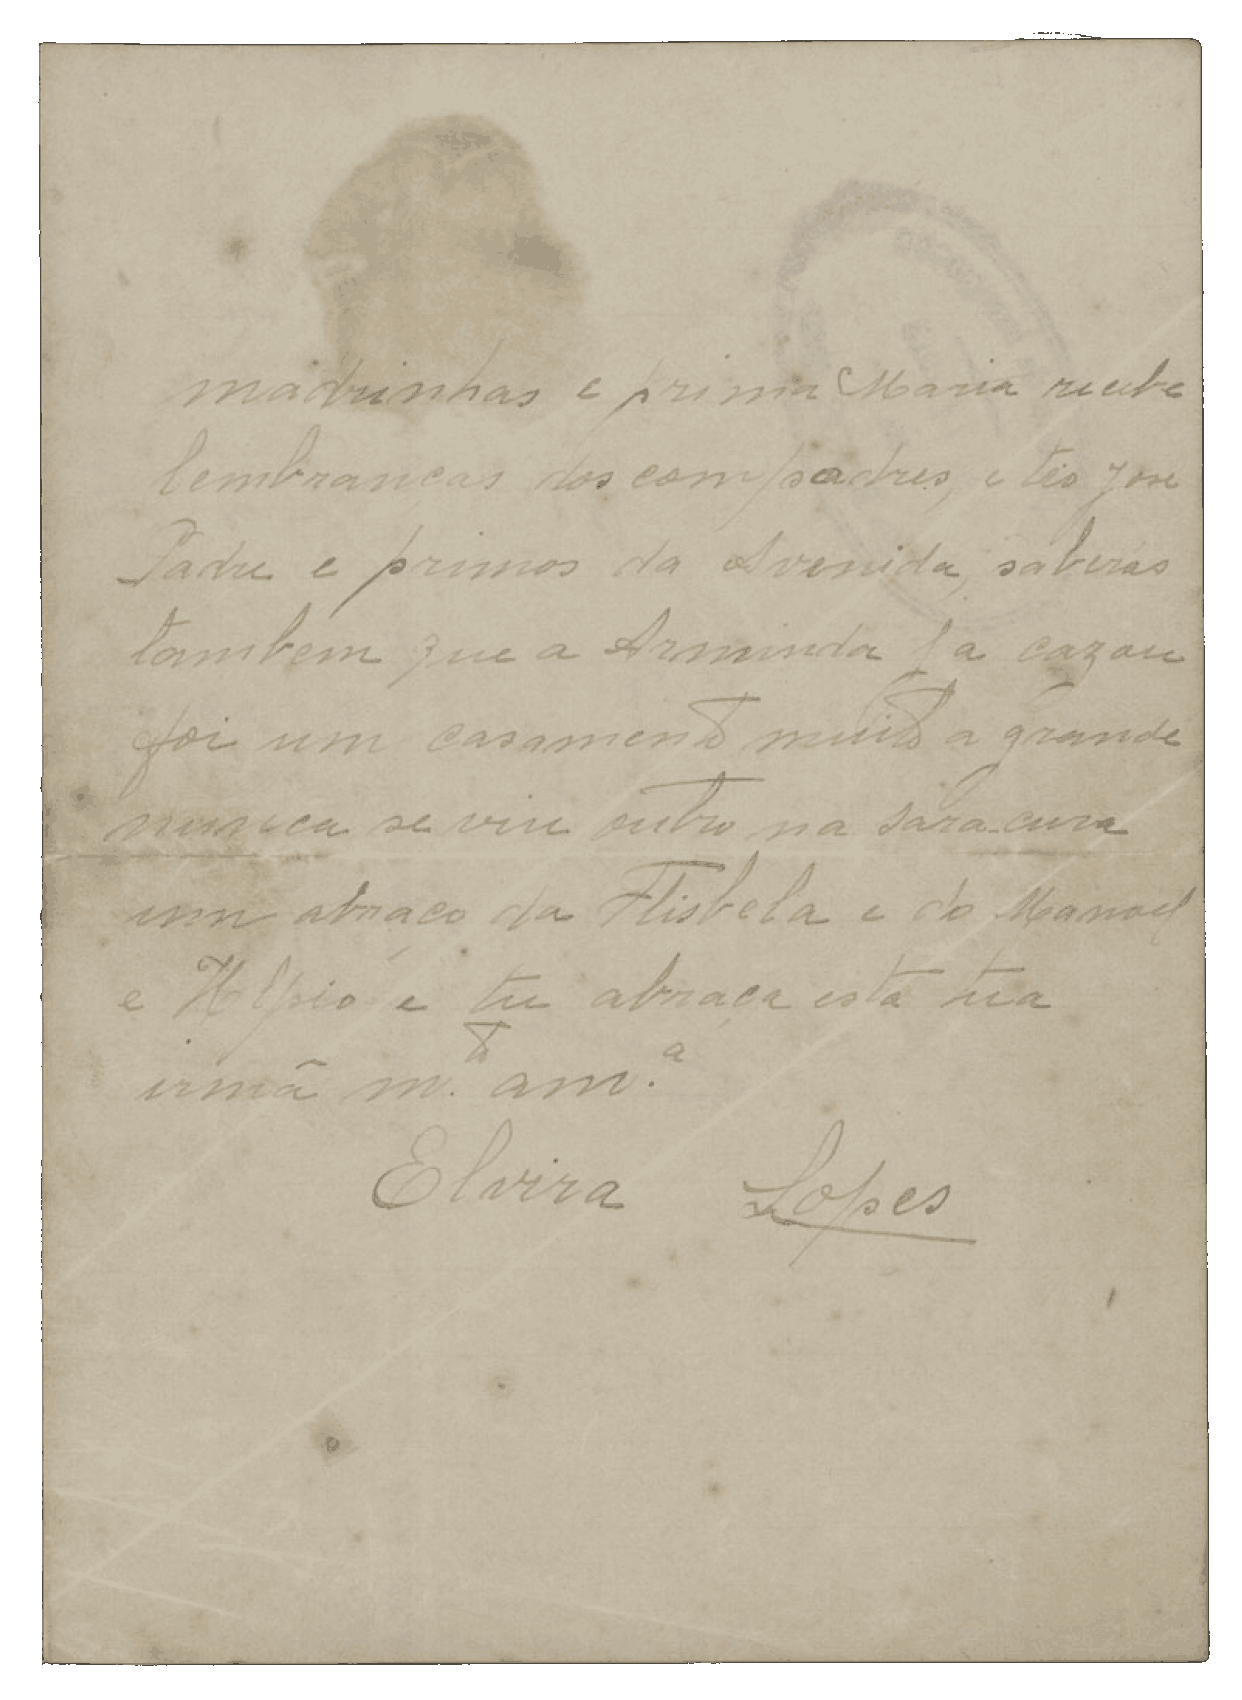 madrinhas e prima Maria recebe
lembrancas dos compadres, e tio Jose
Padre e primos da Avenida, saberas
tambem que a Arminda ja cazou
foi um casamento muito a grande
nunca se viu outro na Sara-cura
um abraço da Flisbela e do Manoel
e e tu abraça esta tua
irmã m.to am.a
Elvira Lopes